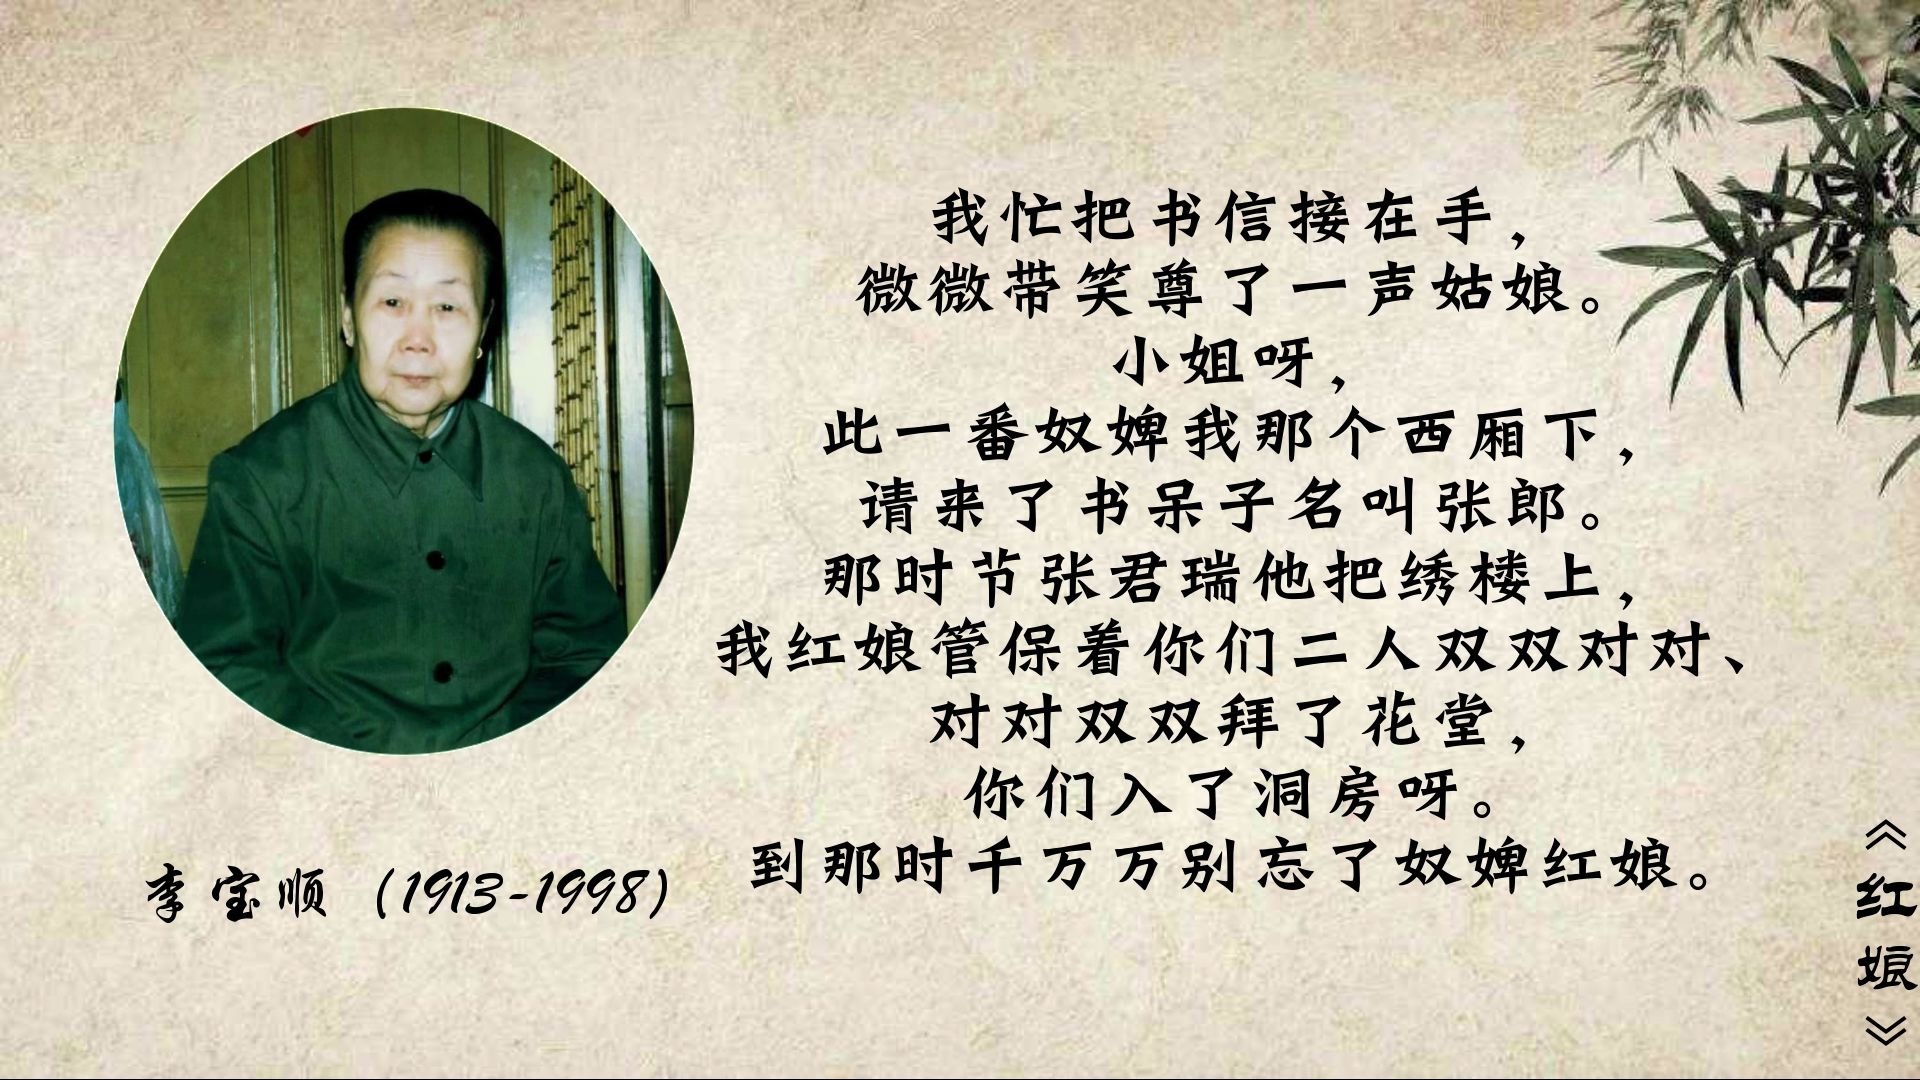 我忙把书信接在手，
微微带笑尊了一声姑娘。
小姐呀，
此一番奴婢我那个西厢下，
请来了书呆子名叫张郎。
那时节张君瑞他把绣楼上，
我红娘管保着你们二人双双对对、
对对双双拜了花堂，
你们入了洞房呀。
到那时千万万别忘了奴婢红娘。
李宝顺（1913-1998）
《红娘》